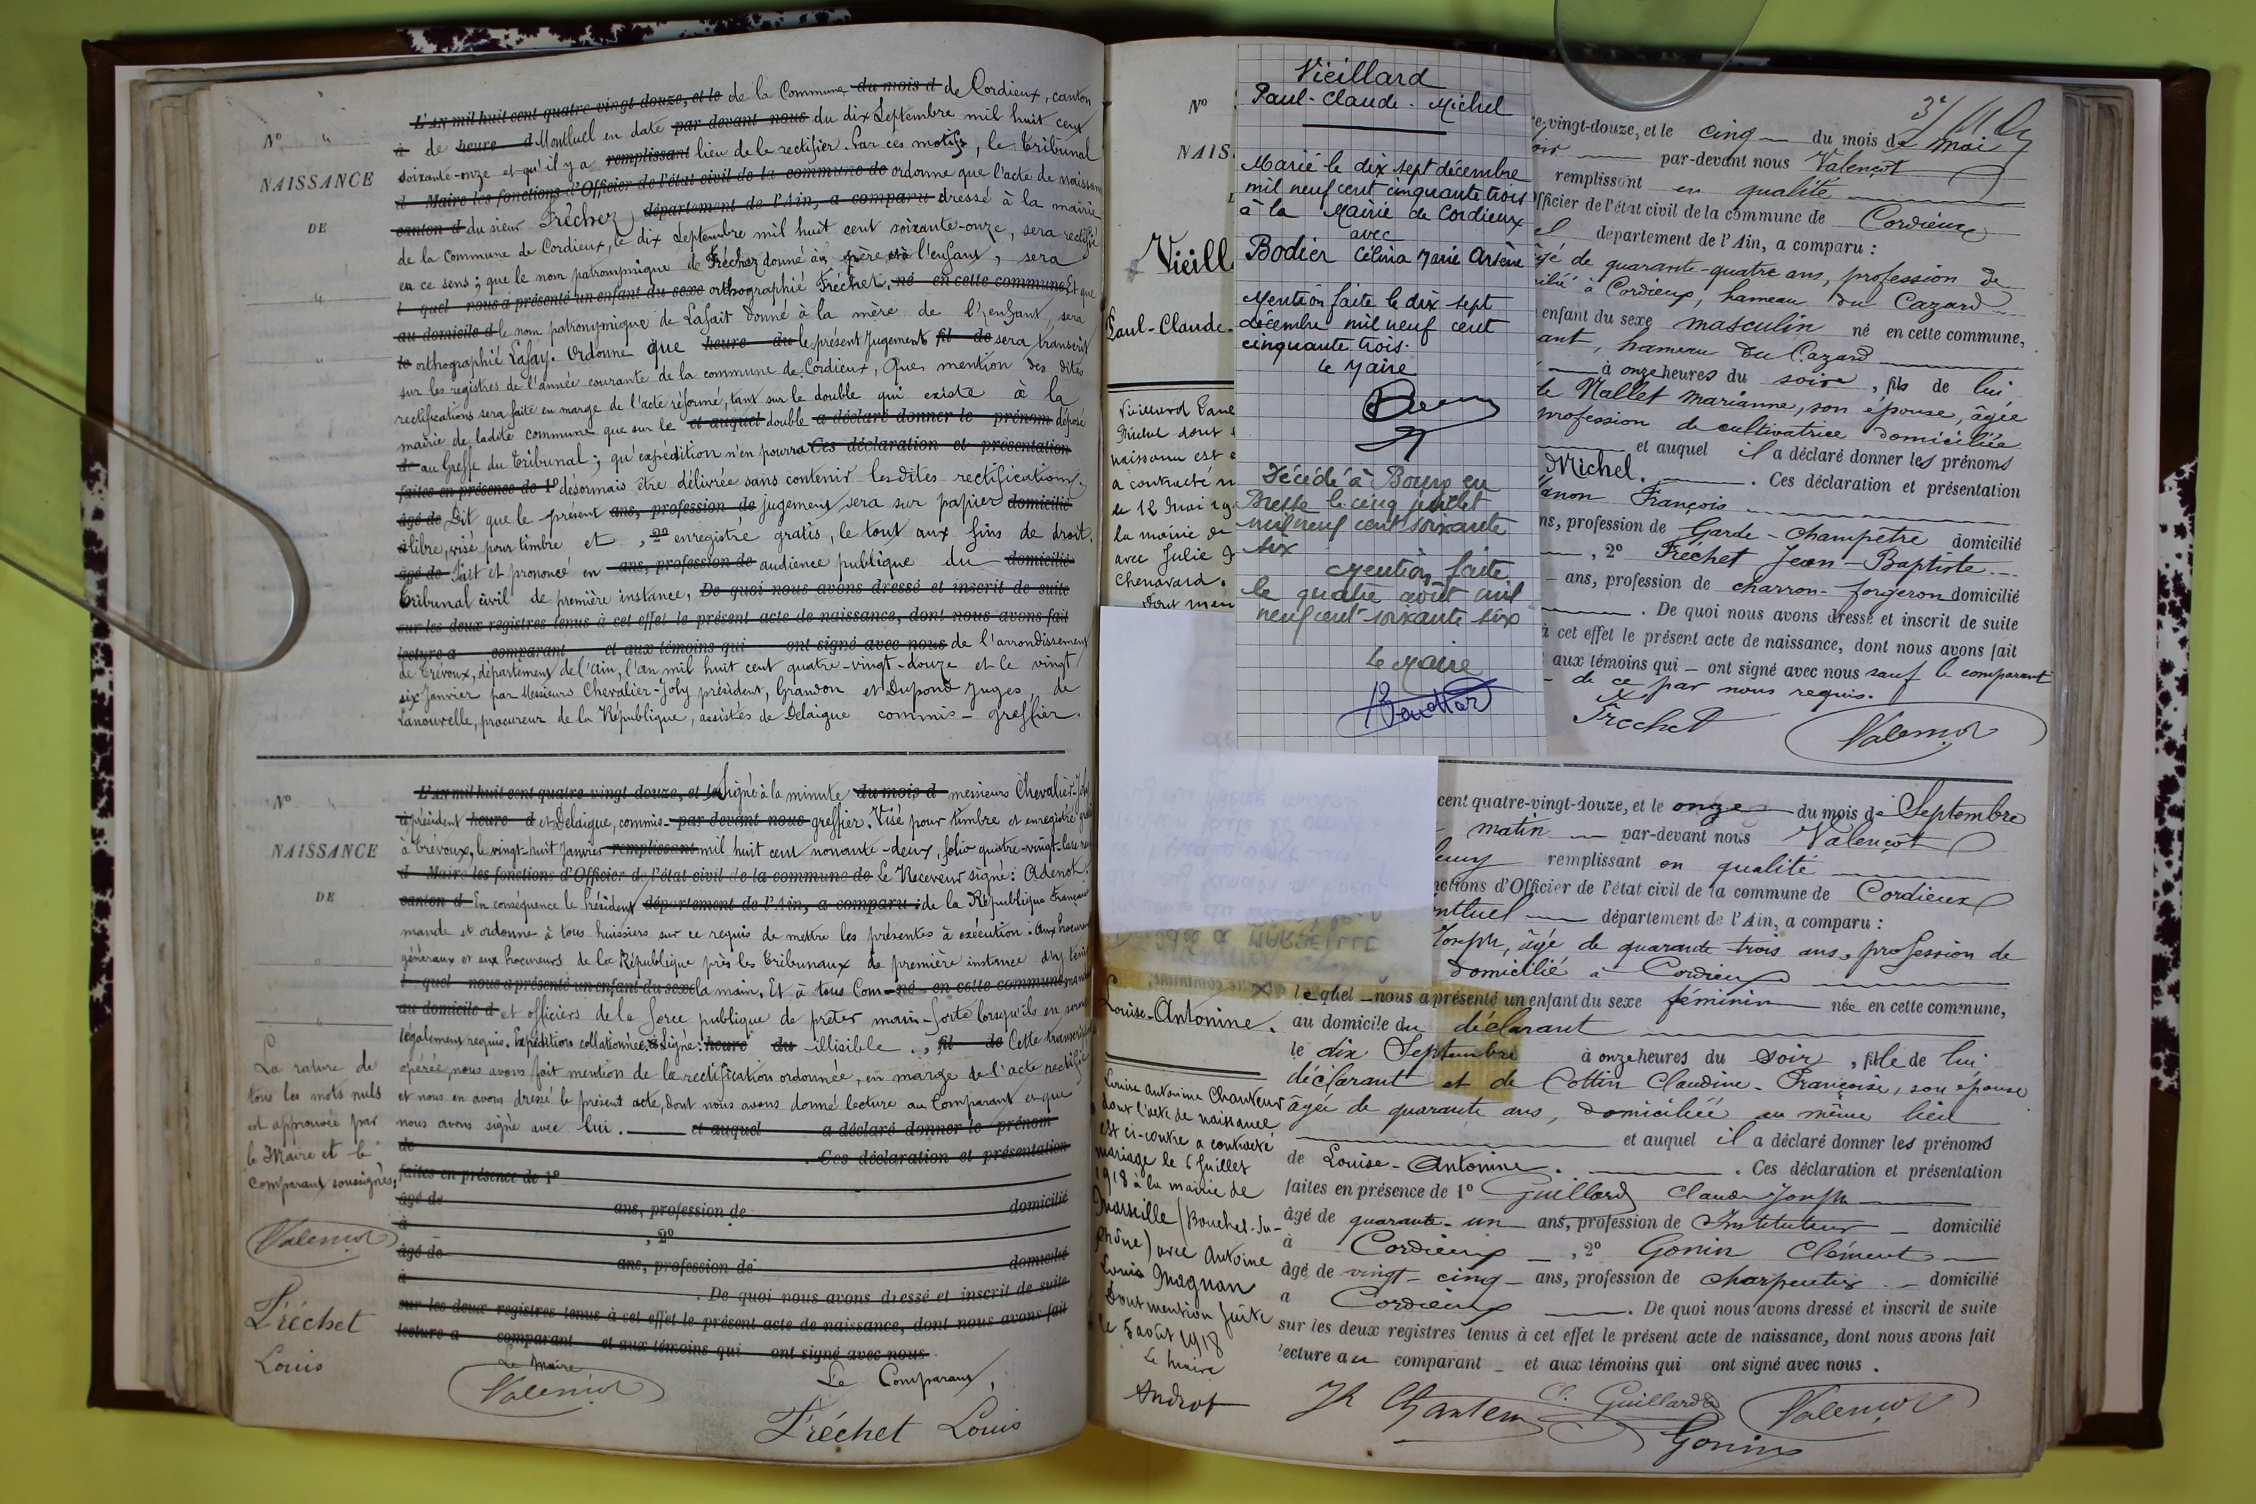 N° "
NAISSANCE
DE
L'AN mil huit cent quatre-vingt-douze, et le de la Commune du mois d de Cordieux, canton
à de heure d Montluel en date par devant nous du dix Septembre mil huit cent
soixante-onze et qu'il y a remplissant lieu de le rectifier. Par ces motifs, le Tribunal
d Maire les fonctions d'Officier de l'état civil de la commune de ordonne que l'acte de naissance
canton d du sieur Fréchez, département de l'Ain, a comparu dressé à la mairie
de la Commune de Cordieux, le dix Septembre mil huit cent soixante-onze, sera rectifié
en ce sens; que le nom patronymique de Fréchez donné au père et à l'enfant, sera
l quel nous a présenté un enfant du sexe orthographié Fréchet, né en cette commune, Et que
au domicile d le nom patronymique de Lafait donné à la mère de l'enfant, sera
le orthographié Lafay. Ordonne que heure du le présent Jugement fil de sera transcrit
sur les registres de l'année courante de la commune de Cordieux, Que mention des dites
rectifications sera faite en marge de l'acte réformé, tant sur le double qui existe à la
mairie de ladite commune que sur le et auquel double a déclaré donner le prénom déposé
d au Greffe du Tribunal; qu'expédition n'en pourra Ces déclaration et présentation
faites en présence de 1° désormais être délivrée sans contenir lesdites rectifications.
âgé de Dit que le présent ans, profession de jugement sera sur papier domicilié
à libre, visé pour timbre et , 2° enregistré gratis, le tout aux fins de droit.
âgé de Fait et prononcé en ans, profession de audience publique du domicilié
Tribunal civil de première instance, De quoi nous avons dressé et inscrit de suite
sur les deux registres tenus à cet effet le présent acte de naissance, dont nous avons fait
lecture a comparant et aux témoins qui ont signé avec nous de l'arrondissement
de Trévoux, département de l'Ain, l'an mil huit cent quatre-vingt-douze et le vingt
six Janvier par Messieurs Chevalier-Joly président, Grandon et Dupond Juges, de
Lanouvelle, procureur de la République, assistés de Delaigue commis-greffier.
N°
NAISSANCE
DE
L'AN mil huit cent quatre-vingt-douze, et le Signé à la minute du mois d messieurs Chevalier-Joly
à président heure d et Delaigue, commis- par devant nous greffier. Visé pour timbre et enregistré
à Trévoux, le vingt-huit Janvier remplissant mil huit cent nonante-deux, folio quatre-vingt
d Maire les fonctions d'Officier de l'état civil de la commune de Le Receveur signé: Adenot.
canton d En conséquence le Président département de l'Ain, a comparu : de la République Française
mande et ordonne à tous huissiers sur ce requis de mettre les présentes à exécution. Aux Procureurs
généraux et aux Procureurs de la République près les Tribunaux de première instance d'y tenir
l quel nous a présenté un enfant du sexe la main, Et à tous Com- né en cette commune
au domicile d et officiers de la force publique de prêter main-forte lorsqu'ils en seront
légalement requis. Expédition collationnée. à Signé: heure du illisible . , fil de Cette transcription
opérée, nous avons fait mention de la rectification ordonnée, en marge de l'acte rectifié
et nous en avons dressé le présent acte, dont nous avons donné lecture au Comparant et que
nous avons signé avec lui. et auquel a déclaré donner le prénom
de . Ces déclaration et présentation
faites en présence de 1°
âgé de ans, profession de domicilié
à , 2°
âgé de ans, profession de domicilié
à . De quoi nous avons dressé et inscrit de suite
sur les deux registres tenus à cet effet le présent acte de naissance, dont nous avons fait
lecture a comparant et aux témoins qui ont signé avec nous.
La rature de
tous les mots nuls
est approuvée par
le Maire et le
Comparant soussignés.
Valençot
Fréchet
Louis
Le Maire
Valençot
Le Comparant,
Fréchet Louis
N°
NAIS
Vieill
Paul-Claude-
Vieillard Paul
Michel dont
naissance est
a contracté
le 12 Mai 19
la mairie de
avec Julie
Chenavard.
Dont men
Vieillard
Paul-Claude-Michel
Marié le dix sept décembre
mil neuf cent cinquante trois
à la Mairie de Cordieux
avec
Bodier Célina Marie Arsène
Mention faite le dix sept
décembre mil neuf cent
cinquante trois.
Le Maire
Décédé à Bourg en
Bresse le cinq juillet
mil neuf cent soixante
six
Mention faite
le quatre août mil
neuf cent soixante six
Le Maire
e-vingt-douze, et le cinq du mois de Mai
soir par-devant nous Valençot
remplissant en qualité
Officier de l'état civil de la commune de Cordieux
el département de l'Ain, a comparu :
âgé de quarante-quatre ans, profession de
cilié à Cordieux, hameau du Cazard
enfant du sexe masculin né en cette commune,
ant, hameau du Cazard
à onze heures du soir, fils de lui
de Mallet Marianne, son épouse, âgée
profession de cultivatrice domiciliée
et auquel il a déclaré donner les prénoms
Michel. . Ces déclaration et présentation
anon François
ns, profession de Garde-Champêtre domicilié
, 2° Fréchet Jean-Baptiste
ans, profession de charron-forgeron domicilié
. De quoi nous avons dressé et inscrit de suite
à cet effet le présent acte de naissance, dont nous avons fait
aux témoins qui ont signé avec nous sauf le comparant
de ce par nous requis.
Fréchet
Valençot
cent quatre-vingt-douze, et le onze du mois de Septembre
matin par-devant nous Valençot
remplissant en qualité
nctions d'Officier de l'état civil de la commune de Cordieux
ontluel département de l'Ain, a comparu :
Joseph, âgé de quarante-trois ans, profession de
domicilié à Cordieux
MARSEILLE
lequel nous a présenté un enfant du sexe féminin née en cette commune,
Louise-Antonine.
au domicile du déclarant
le dix Septembre à onze heures du soir, fille de lui
déclarant et de Cottin Claudine-Françoise, son épouse
âgée de quarante ans, domiciliée au même lieu
et auquel il a déclaré donner les prénoms
de Louise-Antonine. . Ces déclaration et présentation
faites en présence de 1° Guillard Claude Joseph
âgé de quarante-un ans, profession de Instituteur domicilié
à Cordieux , 2° Gonin Clément
âgé de vingt-cinq ans, profession de charpentier domicilié
à Cordieux . De quoi nous avons dressé et inscrit de suite
sur les deux registres tenus à cet effet le présent acte de naissance, dont nous avons fait
lecture au comparant et aux témoins qui ont signé avec nous.
Louise Antonine Chanteur
dont l'acte de naissance
est ci-contre a contracté
mariage le 6 Juillet
1918 à la mairie de
Marseille (Bouches-du-
Rhône) avec Antoine
Louis Magnan
Dont mention faite
le 5 août 1918
Le maire
Androt
Jh Chanteur
Cl. Guillard
Valençot
Gonin